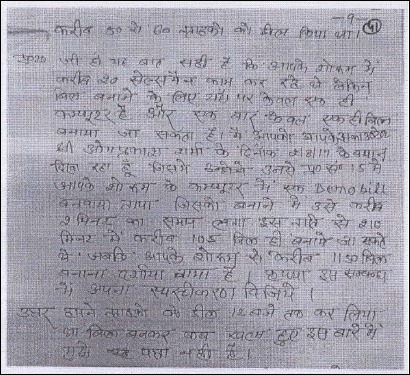 -9- 41
करीब 50 से 60 ग्राहकों को डील किया था।
प्र०20 जी हाँ यह बात सही है कि आपके शोरूम में
करीब 20 सेल्समैन काम कर रहे थे लेकिन
बिल बनाने के लिए वहाँ पर केवल एक ही
कम्प्यूटर है और एक बार केवल एक ही बिल
बनाया जा सकता है। मैं आपको आपके
श्री ओमप्रकाश वर्मा के दिनांक के बयान
दिखा रहा हूँ जिसमें उन्होंने उनसे प्र० सं० 15 में
आपके शोरूम के कम्प्यूटर में एक Demo bill
बनवाया गया जिसको बनाने में उसे करीब
2 मिनट का समय लगा इस नाते से 210
मिनट में करीब 105 बिल ही बनाये जा सकते
थे जबकि आपके शोरूम से करीब 1150 बिल
बनाना पाया है। कृपया इस सम्बन्ध
में अपना स्पष्टीकरण दीजिये।
उत्तर हमने ग्राहकों को डील 12 बजे तक कर लिया
था बिल बनकर कब खत्म हुए इस बारे में
मुझे पता नहीं है।